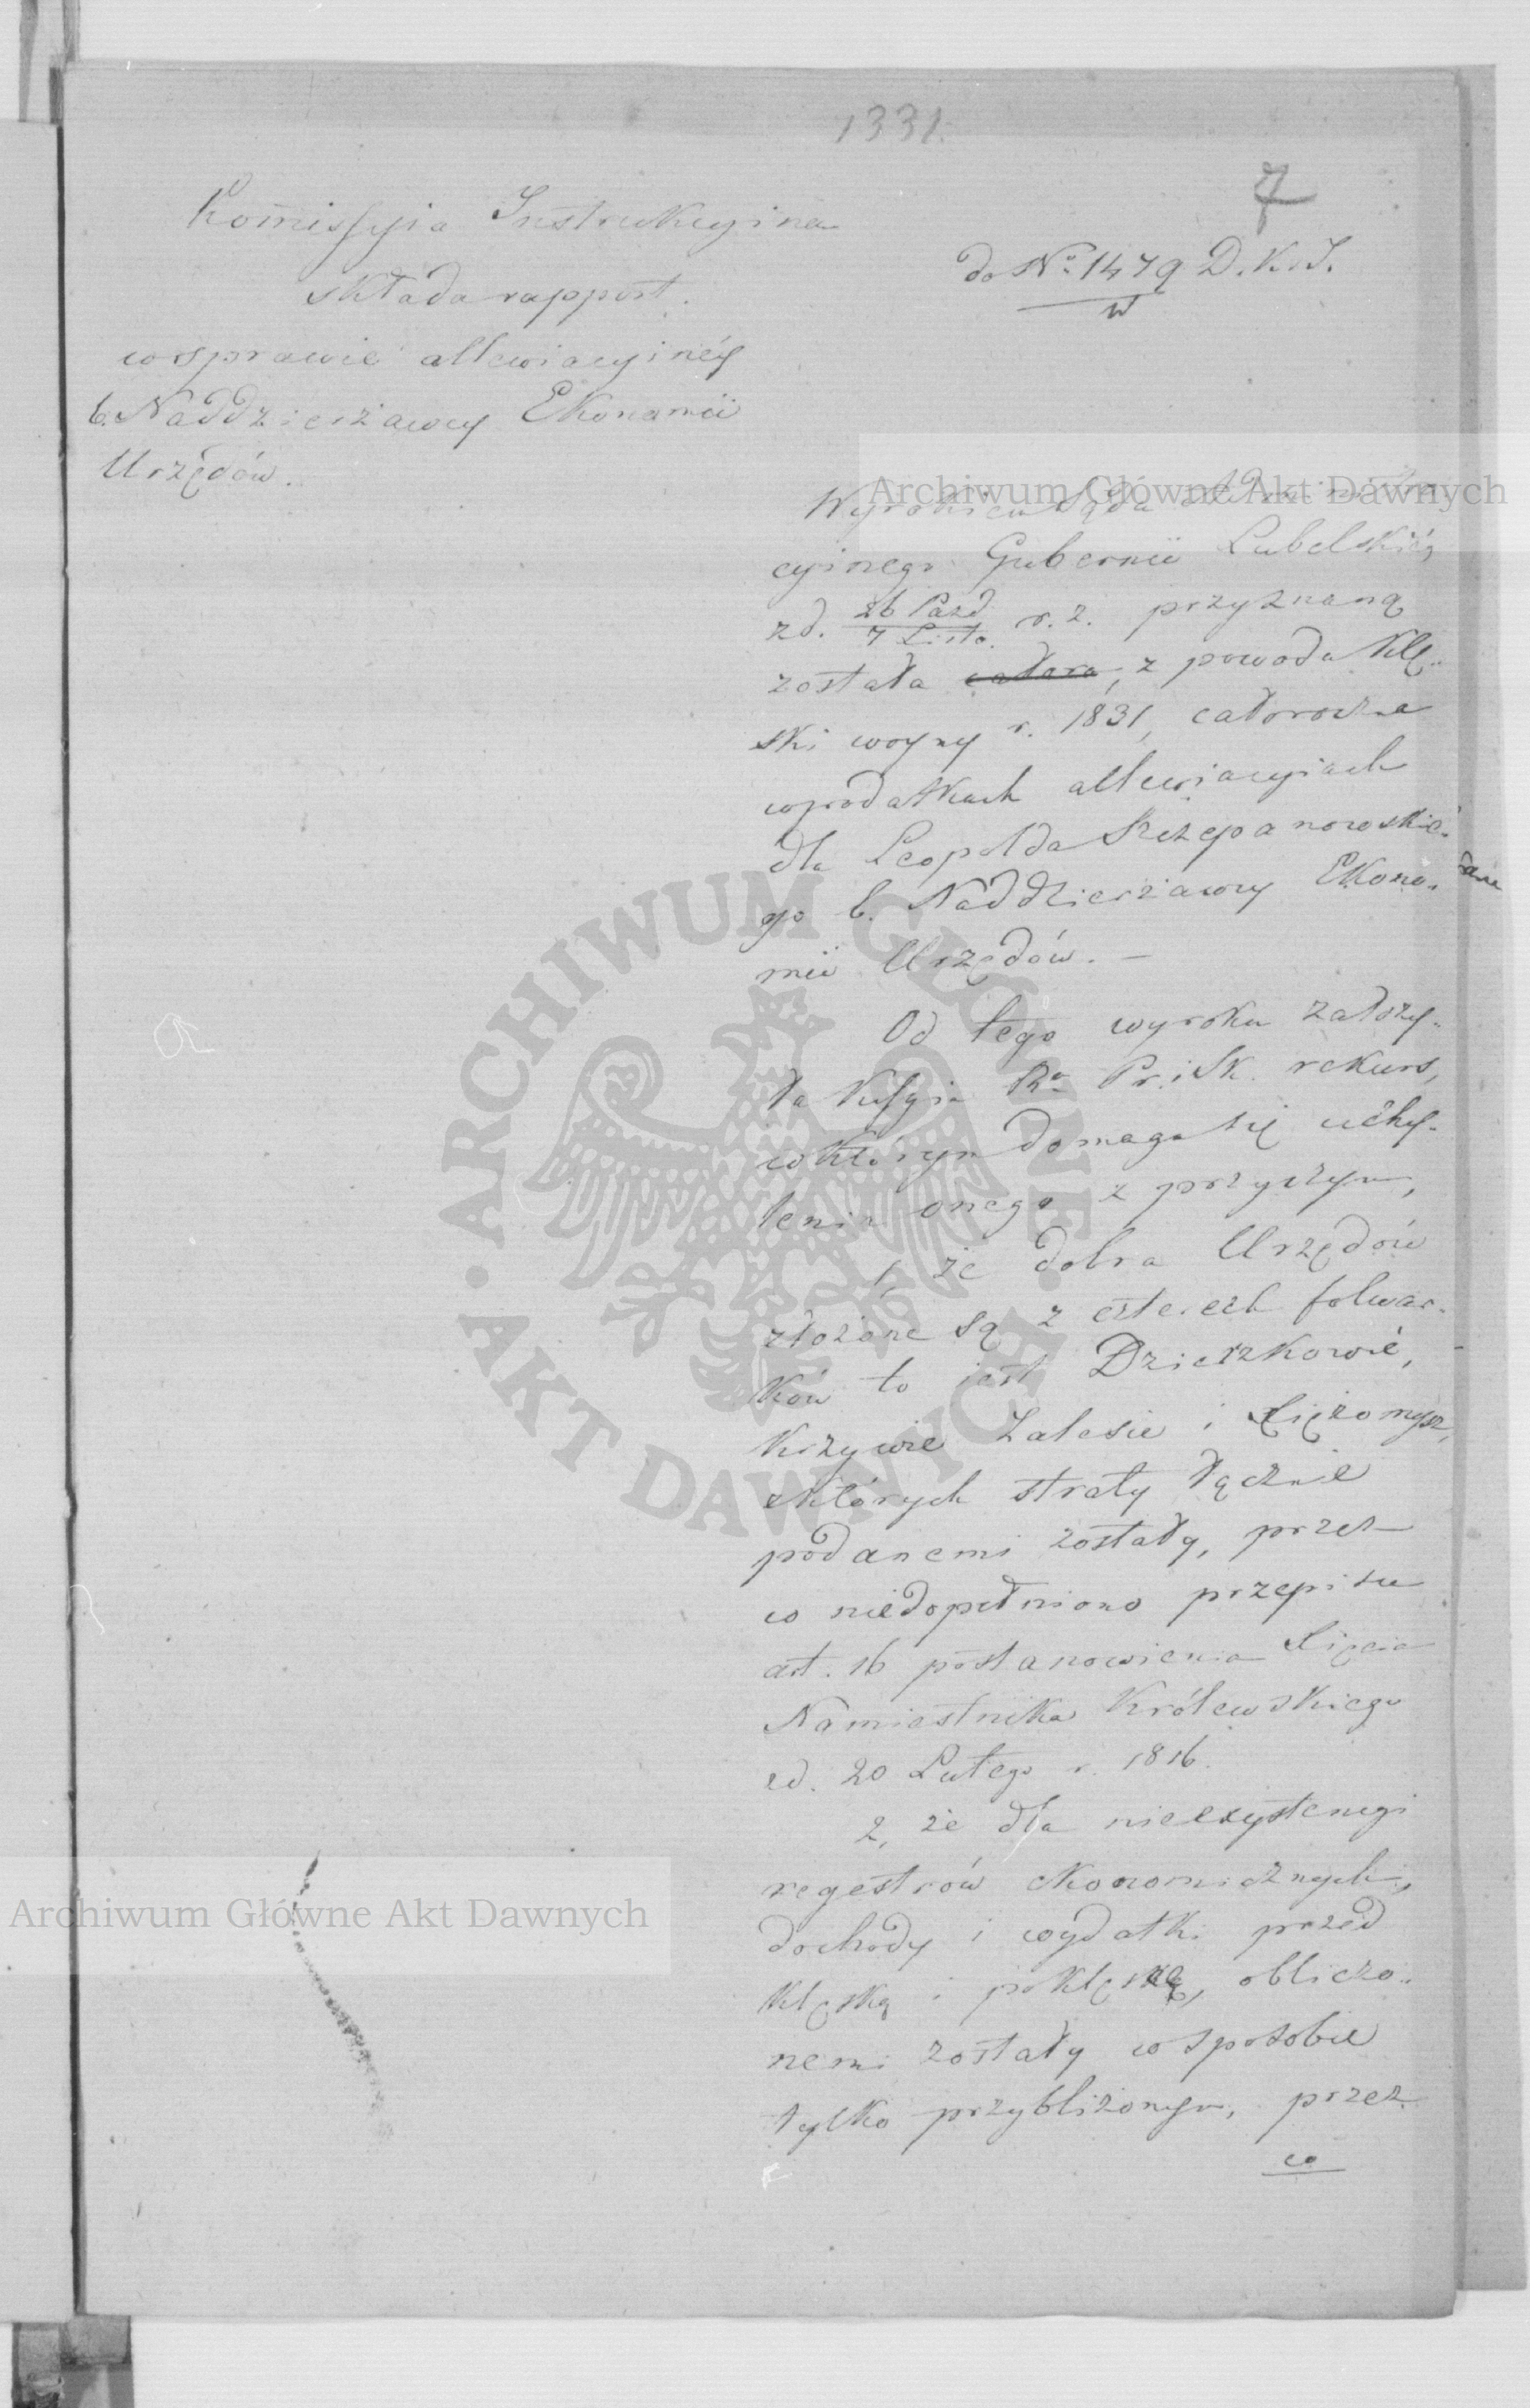 1331.
7
Kom̄issyia Instrukcyina
składa rapport
w sprawie allewiacyinéy
b. Naddzierżawcy Ekonomii
Urzędów.
do No. 1479 D.K.I.
Archiwum Główne Akt Dawnych
Wyrokiem Sądu
cyinego Gubernii Lubelskiéy
z d. 26 Paźd / 7 Listo. r. z. przyznaną
została, z powodu klę-
ski woyny r. 1831, całoroczna
w podatkach allewiacyiach
dla Leopolda Szczepanowskie-
go b. Naddzierżawcy Ekono-
mii Urzędów. —
Od tego wyroku założy-
ła Kssyia Rwa Pr. i Sk. rekurs,
w którym domaga się uchy-
lenia onego z przyczyn,
1, że dobra Urzędów
złożone są z czterech folwar-
ków to iest Dzierzkowic,
Krzywie Zalesie i Xiężomysz,
których straty łącznie
podanemi zostały, przez
co niedopełniono przepisu
art. 16 postanowienia Xięcia
Namiestnika Królewskiego
z d. 20 Lutego r. 1816.
2, że dla nieexystencyi
regestrów ekonomicznych,
dochody i wydatki przed
klęską i po klęsce, obliczo-
nemi zostały w sposobie
tylko przybliżonym, przez
co
Archiwum Główne Akt Dawnych
ARCHIWUM GŁÓWNE · AKT DAWNYCH ·